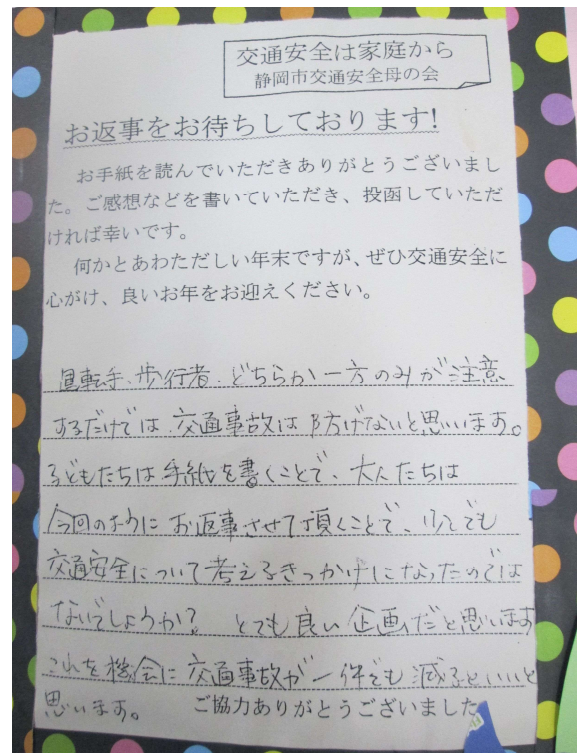 交通安全は家庭から
静岡市交通安全母の会
お返事をお待ちしております!
お手紙を読んでいただきありがとうございまし
た。ご感想などを書いていただき、投函していただ
ければ幸いです。
何かとあわただしい年末ですが、ぜひ交通安全に
心がけ、良いお年をお迎えください。
運転手、歩行者、どちらか一方のみが注意
するだけでは、交通事故は防げないと思います。
子どもたちは手紙を書くことで、大人たちは
今回のようにお返事させて頂くことで、少しでも
交通安全について考えるきっかけになったのでは
ないでしょうか? とても良い企画だと思います
これを機会に交通事故が一件でも減るといいと
思います。 ご協力ありがとうございました